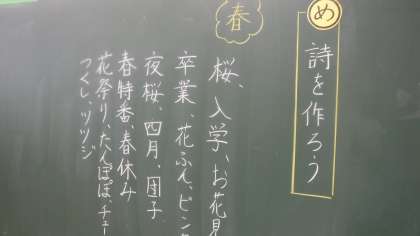 め
詩を作ろう
春
桜、入学、お花見
卒業、花ふん、ピンク
夜桜、四月、団子
春特番、春休み
花祭り、たんぽぽ、チュー
つくし、ツツジ